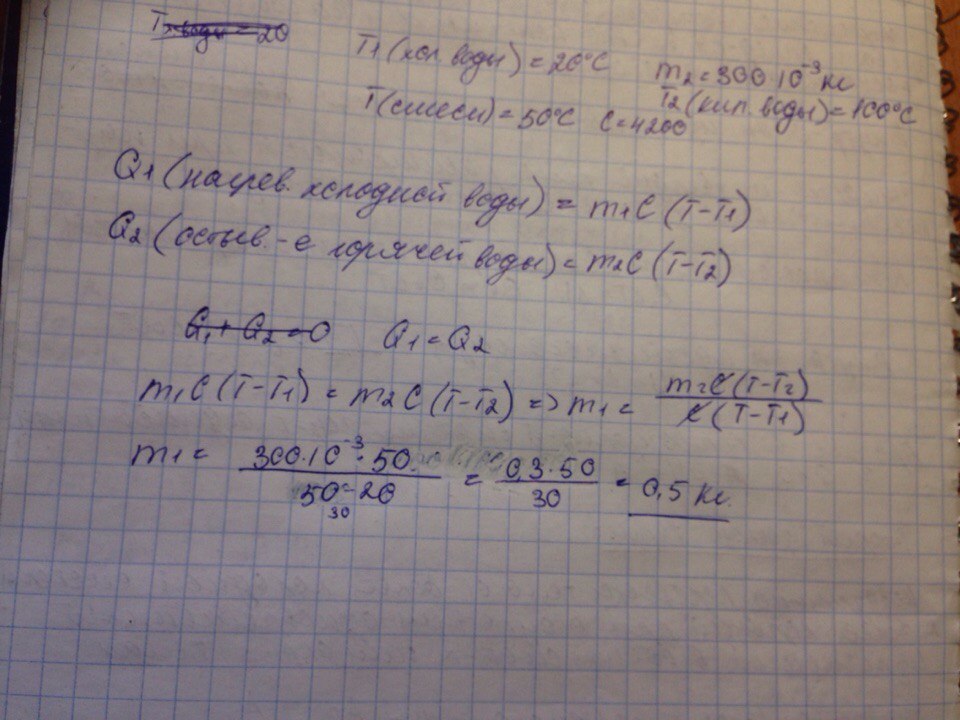 T1 (хол. воды) = 20°C
m2 = 300·10⁻³ кг
T (смеси) = 50°C C = 4200
T2 (кип. воды) = 100°C
Q1 (нагрев. холодной воды) = m1C (T-T1)
Q2 (остыв.-е горячей воды) = m2C (T-T2)
Q1 + Q2 = 0 Q1 = Q2
m1C (T-T1) = m2C (T-T2) => m1 = m2C(T-T2) / C(T-T1)
m1 = 300·10⁻³·50 / 50-20 = 0,3·50 / 30 = 0,5 кг.
30